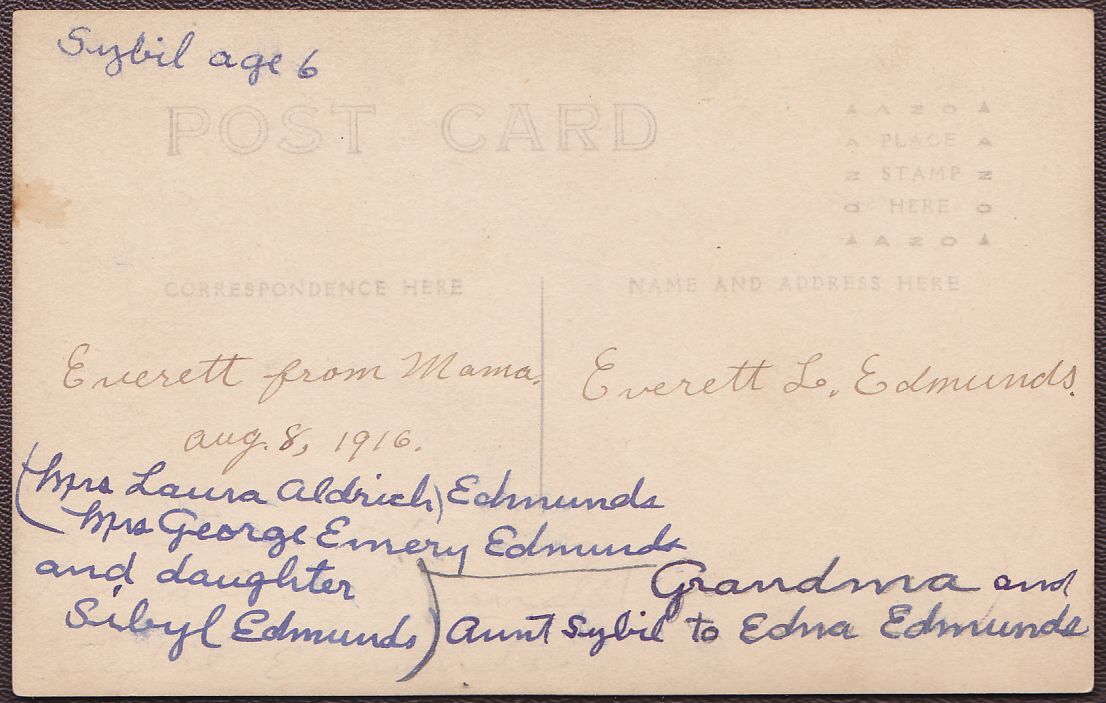 Sybil age 6
POST CARD
▲ A Z O ▲
A PLACE A
Z STAMP Z
O HERE O
▲ A Z O ▲
CORRESPONDENCE HERE
NAME AND ADDRESS HERE
Everett from Mama.
Aug. 8, 1916.
Everett L. Edmunds.
(Mrs Laura Aldrich) Edmunds
Mrs George Emery Edmunds
and daughter
Sibyl (Edmunds)
Grandma and
Aunt Sybil to Edna Edmunds